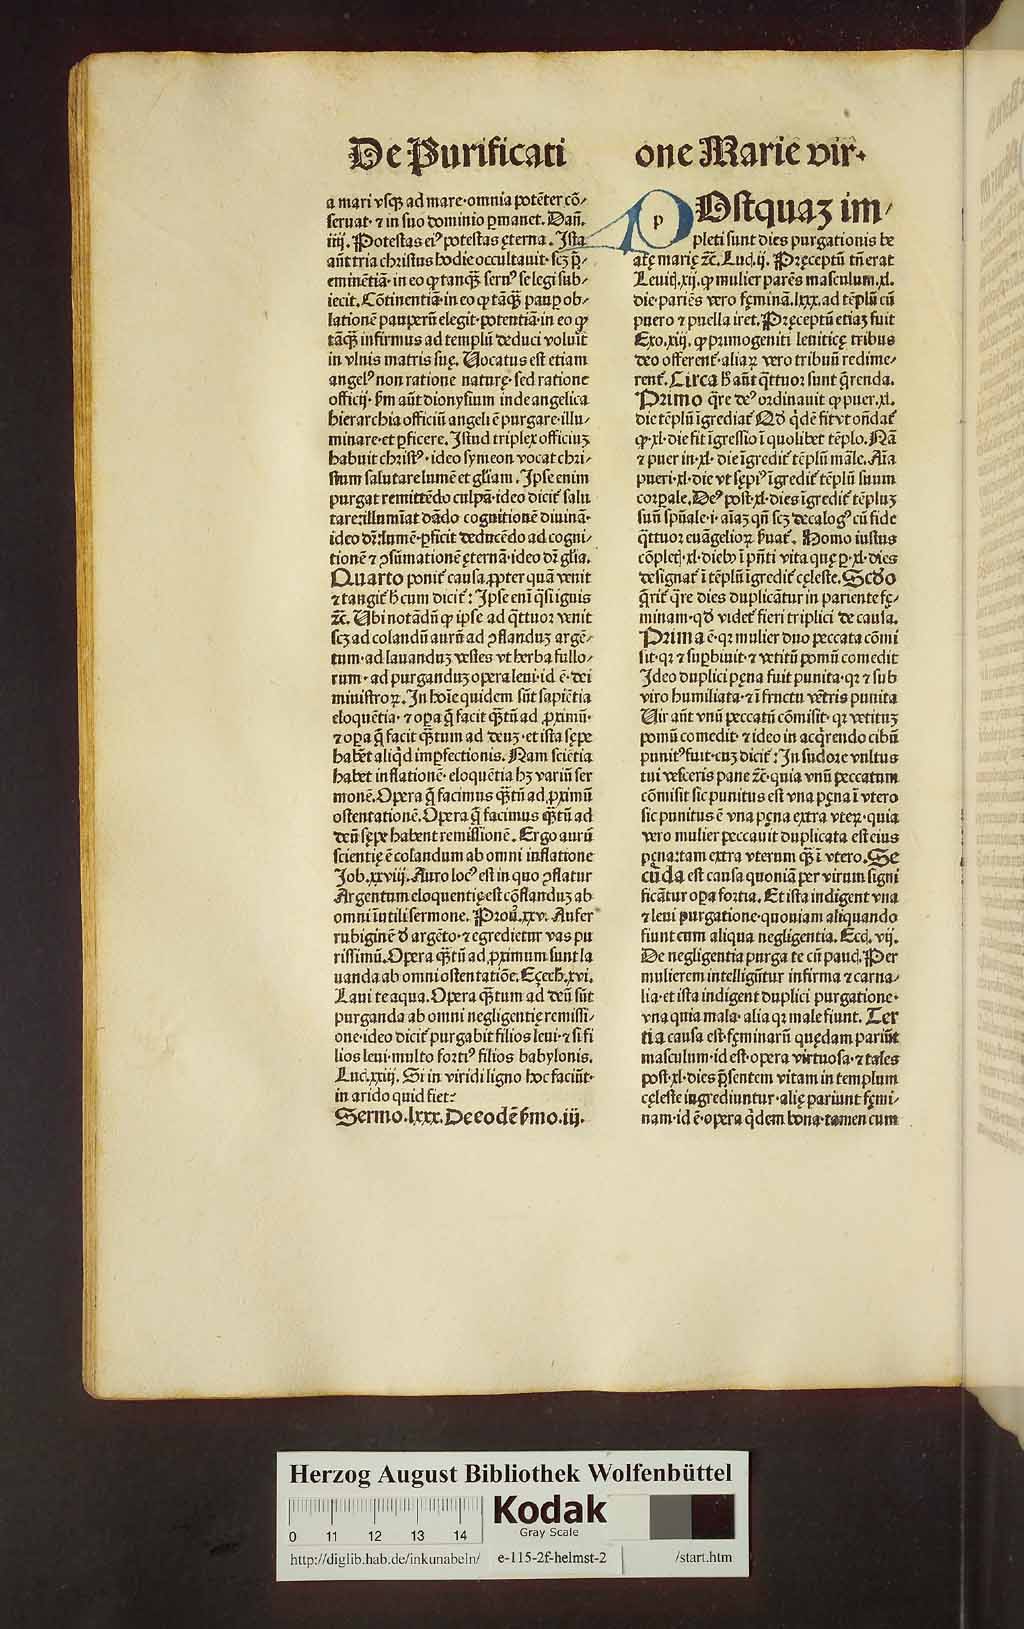 De Purificati
one Marie vir.
a mari vsqꝫ ad mare·omnia potēter cō⸗
seruat·⁊ in suo dominio ꝑmanet. Dañ.
iiij. Potestas eiꝰ potestas ęterna. Ista
aūt tria christus hodie occultauit·scꝫ p̄⸗
eminētiā·in eo ꝙ tanqꝫ̄ seruꝰ se legi sub⸗
iecit. Cōtinentiā·in eo ꝙ tāqꝫ̄ pauꝑ ob⸗
lationē pauperū elegit·potentiā·in eo ꝙ
tāqꝫ̄ infirmus ad templū deduci voluit
in vlnis matris suę. Vocatus est etiam
angelꝰ non ratione naturę·sed ratione
officij·ẜm aūt dionysium inde angelica
hierarchia officiū angeli ē purgare·illu⸗
minare·et ꝑficere. Istud triplex officiuꝫ
habuit christꝰ·ideo symeon vocat chri⸗
stum salutare lumē et gl̄iam. Ipse enim
purgat remittēdo culpā·ideo dicit᷑ salu
tare:illumīat dādo cognitionē diuinā·
ideo dr̄:lumē·ꝑficit deducēdo ad cogni⸗
tionē ⁊ ꝯsūmationē ęternā·ideo dr̄ gl̄ia.
Quarto ponit᷑ causa ꝓpter quā venit
⁊ tangit᷑ h̄ cum dicit᷑: Ipse enī q̄si ignis
⁊c̄. Ubi notādū ꝙ ipse ad q̄ttuor venit
scꝫ ad colandū aurū ad ꝯflanduꝫ argē⸗
tum·ad lauanduꝫ vestes vt herba fullo⸗
rum·ad purganduꝫ opera leui·id ē·dei
ministroꝝ. In hoīe quidem sūt sapiētia
eloquētia·⁊ oꝑa q̄ facit qꝫ̄tū ad ꝓximū·
⁊ oꝑa q̄ facit qꝫ̄tum ad deuꝫ·et ista sępe
habēt aliqͥd imꝑfectionis. Nam sciētia
habet inflationē·eloquētia hꝫ variū ser
monē. Opera q̄ facimus qꝫ̄tū ad ꝓximū
ostentationē. Opera q̄ facimus qꝫ̄tū ad
deū sępe habent remissionē. Ergo aurū
scientię ē colandum ab omni inflatione
Job.xxviij. Auro locꝰ est in quo ꝯflatur
Argentum eloquentię est cōflanduꝫ ab
omni inutili sermone. Prou.xxv. Aufer
rubiginē ꝺ argēto·⁊ egredietur vas pu
rissimū. Opera qꝫ̄tū ad ꝓximum sunt la
uanda ab omni ostentatiōe. Eçech.xvi.
Laui te aqua. Opera qꝫ̄tum ad deū sūt
purganda ab omni negligentię remissi⸗
one·ideo dicit᷑ purgabit filios leui·⁊ si fi
lios leui·multo fortiꝰ filios babylonis.
Luc.xxiij. Si in viridi ligno hoc faciūt·
in arido quid fiet?
Sermo.lxxx. De eodē ẜmo.iij.
p
Ostquaꝫ im⸗
pleti sunt dies purgationis be
atę marię ⁊c̄. Luc.ij. Pręceptū tn̄ erat
Leuit.xij.ꝙ mulier parēs masculum.xl.
die·pariēs vero fęminā.lxxx.ad tēplū cū
puero ⁊ puella iret. Pręceptū etiaꝫ fuit
Exo.xiij. ꝙ primogeniti leuiticę tribus
deo offerent᷑·aliaꝝ vero tribuū redime⸗
rent᷑. Circa h̄ aūt q̄ttuor sunt q̄renda.
Primo q̄re deꝰ ordinauit ꝙ puer.xl.
die tēplū īgrediat᷑ Qd̄ qͥdē fit vt oñdat᷑
ꝙ·xl·die fit īgressio ī quolibet tēplo. Nā
⁊ puer in·xl·die īgredit᷑ tēplū māle. Aīa
pueri·xl·die vt sępiꝰ īgredit᷑ tēplū suum
corꝑale. Deꝰ post·xl·dies īgredit᷑ tēpluꝫ
suū spūale·i·aīaꝫ qn̄ scꝫ decalogꝰ cū fide
q̄ttuor euāgelioꝝ ẜuat᷑. Homo iustus
cōplet᷑·xl·dieb⁊ ī pn̄ti vita quę ꝑ·xl·dies
designat᷑ ī tēplū īgredit᷑ cęleste. Scd̄o
q̄rit᷑ q̄re dies duplicāntur in pariente fę⸗
minam·qd̄ videt᷑ fieri triplici de causa.
Prima ē·qꝛ mulier duo peccata cōmi
sit·qꝛ ⁊ suꝑbiuit·⁊ vetitū pomū comedit
Ideo duplici pęna fuit punita·qꝛ ⁊ sub
viro humiliata·⁊ ī fructu vētris punita
Vir aūt vnū peccatū cōmisit·qꝛ vetituꝫ
pomū comedit·⁊ ideo in acq̄rendo cibū
punitꝰ fuit·cuꝫ dicit᷑: In sudore vultus
tui vesceris pane ⁊c̄·quia vnū peccatum
cōmisit sic punitus est vna pęna ī vtero
sic punitus ē vna pęna extra vteꝝ·quia
vero mulier peccauit duplicata est eius
pęna:tam extra vterum qꝫ̄ ī vtero. Se
cūda est causa quoniā per virum signi
ficātur oꝑa fortia. Et ista indigent vna
⁊ leui purgatione·quoniam aliquando
fiunt cum aliqua negligentia. Ecc̄. vij.
De negligentia purga te cū pauc̄. Per
mulierem intelligūtur infirma ⁊ carna⸗
lia·et ista indigent duplici purgatione·
vna quia mala·alia qꝛ male fiunt. Ter
tia causa est·fęminarū quędam pariūt
masculum·id est·opera virtuosa·⁊ tales
post·xl·dies p̄sentem vitam in templum
cęleste ingrediuntur·alię pariunt fęmi⸗
nam·id ē·opera qͥdem bona·tamen cum
Herzog August Bibliothek Wolfenbüttel
0 11 12 13 14
Kodak
Gray Scale
http://diglib.hab.de/inkunabeln/ e-115-2f-helmst-2 /start.htm